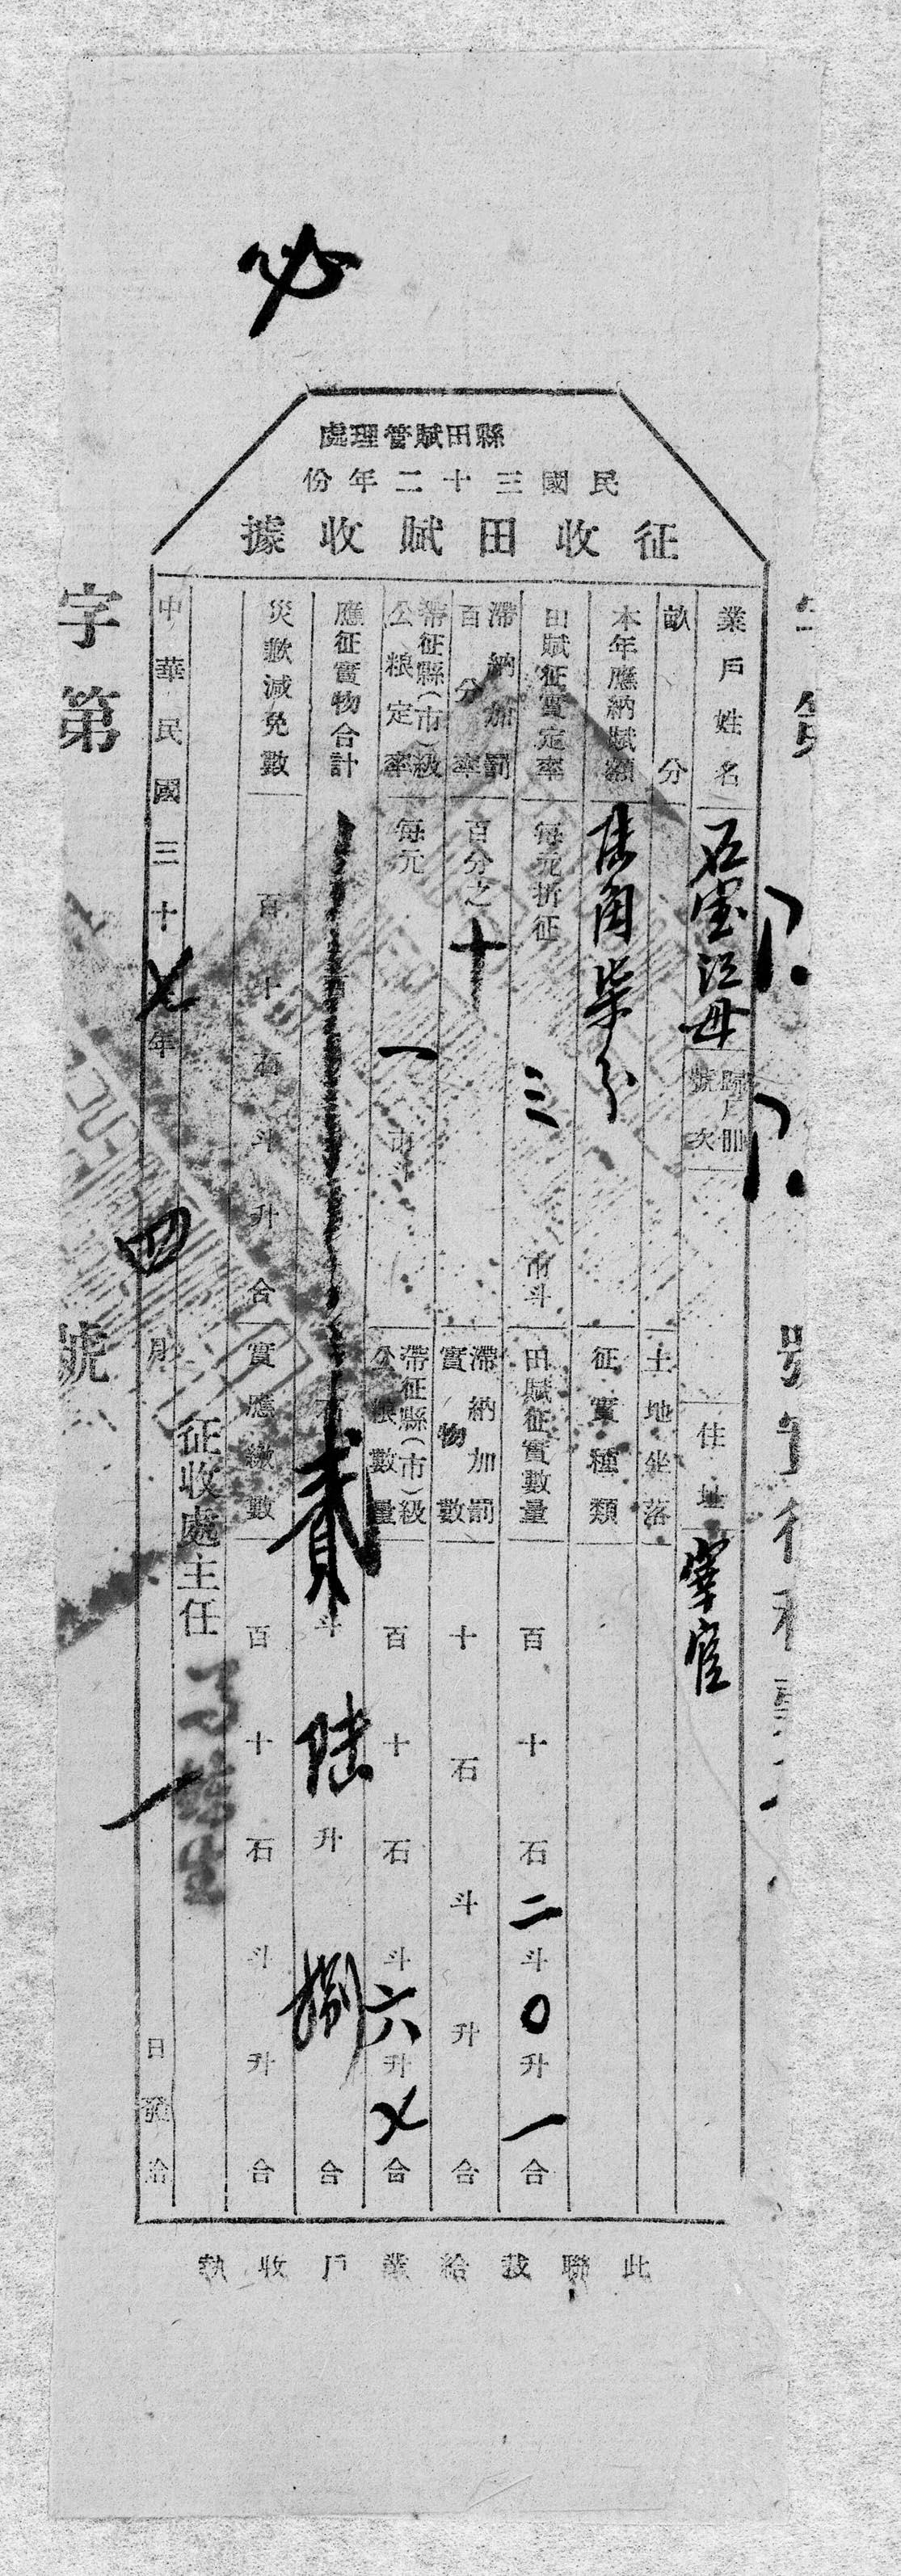 縣田賦管理處
民國三十二年份
征收田賦收據
業戶姓名 石 江母 歸戶冊號次 住址 宰官
畝分 土地坐落
本年應納賦額 陸角柒分 征實種類
田賦征實定率 每元折征 三 市斗 田賦征實數量 百十石二斗0升一合
滯納加罰百分率 百分之十 滯納加罰實物數 十石斗升合
帶征縣(市)級公粮定率 每元 一 市斗 帶征縣(市)級公粮數量 百十石斗六升七合
應征實物合計 百 石貳斗陸升捌合
災歉減免數 百十石斗升合 實應繳數 百十石斗升合
征收處主任
中華民國三十七年四月一日發給
字第 號
此聯裁給業戶收執